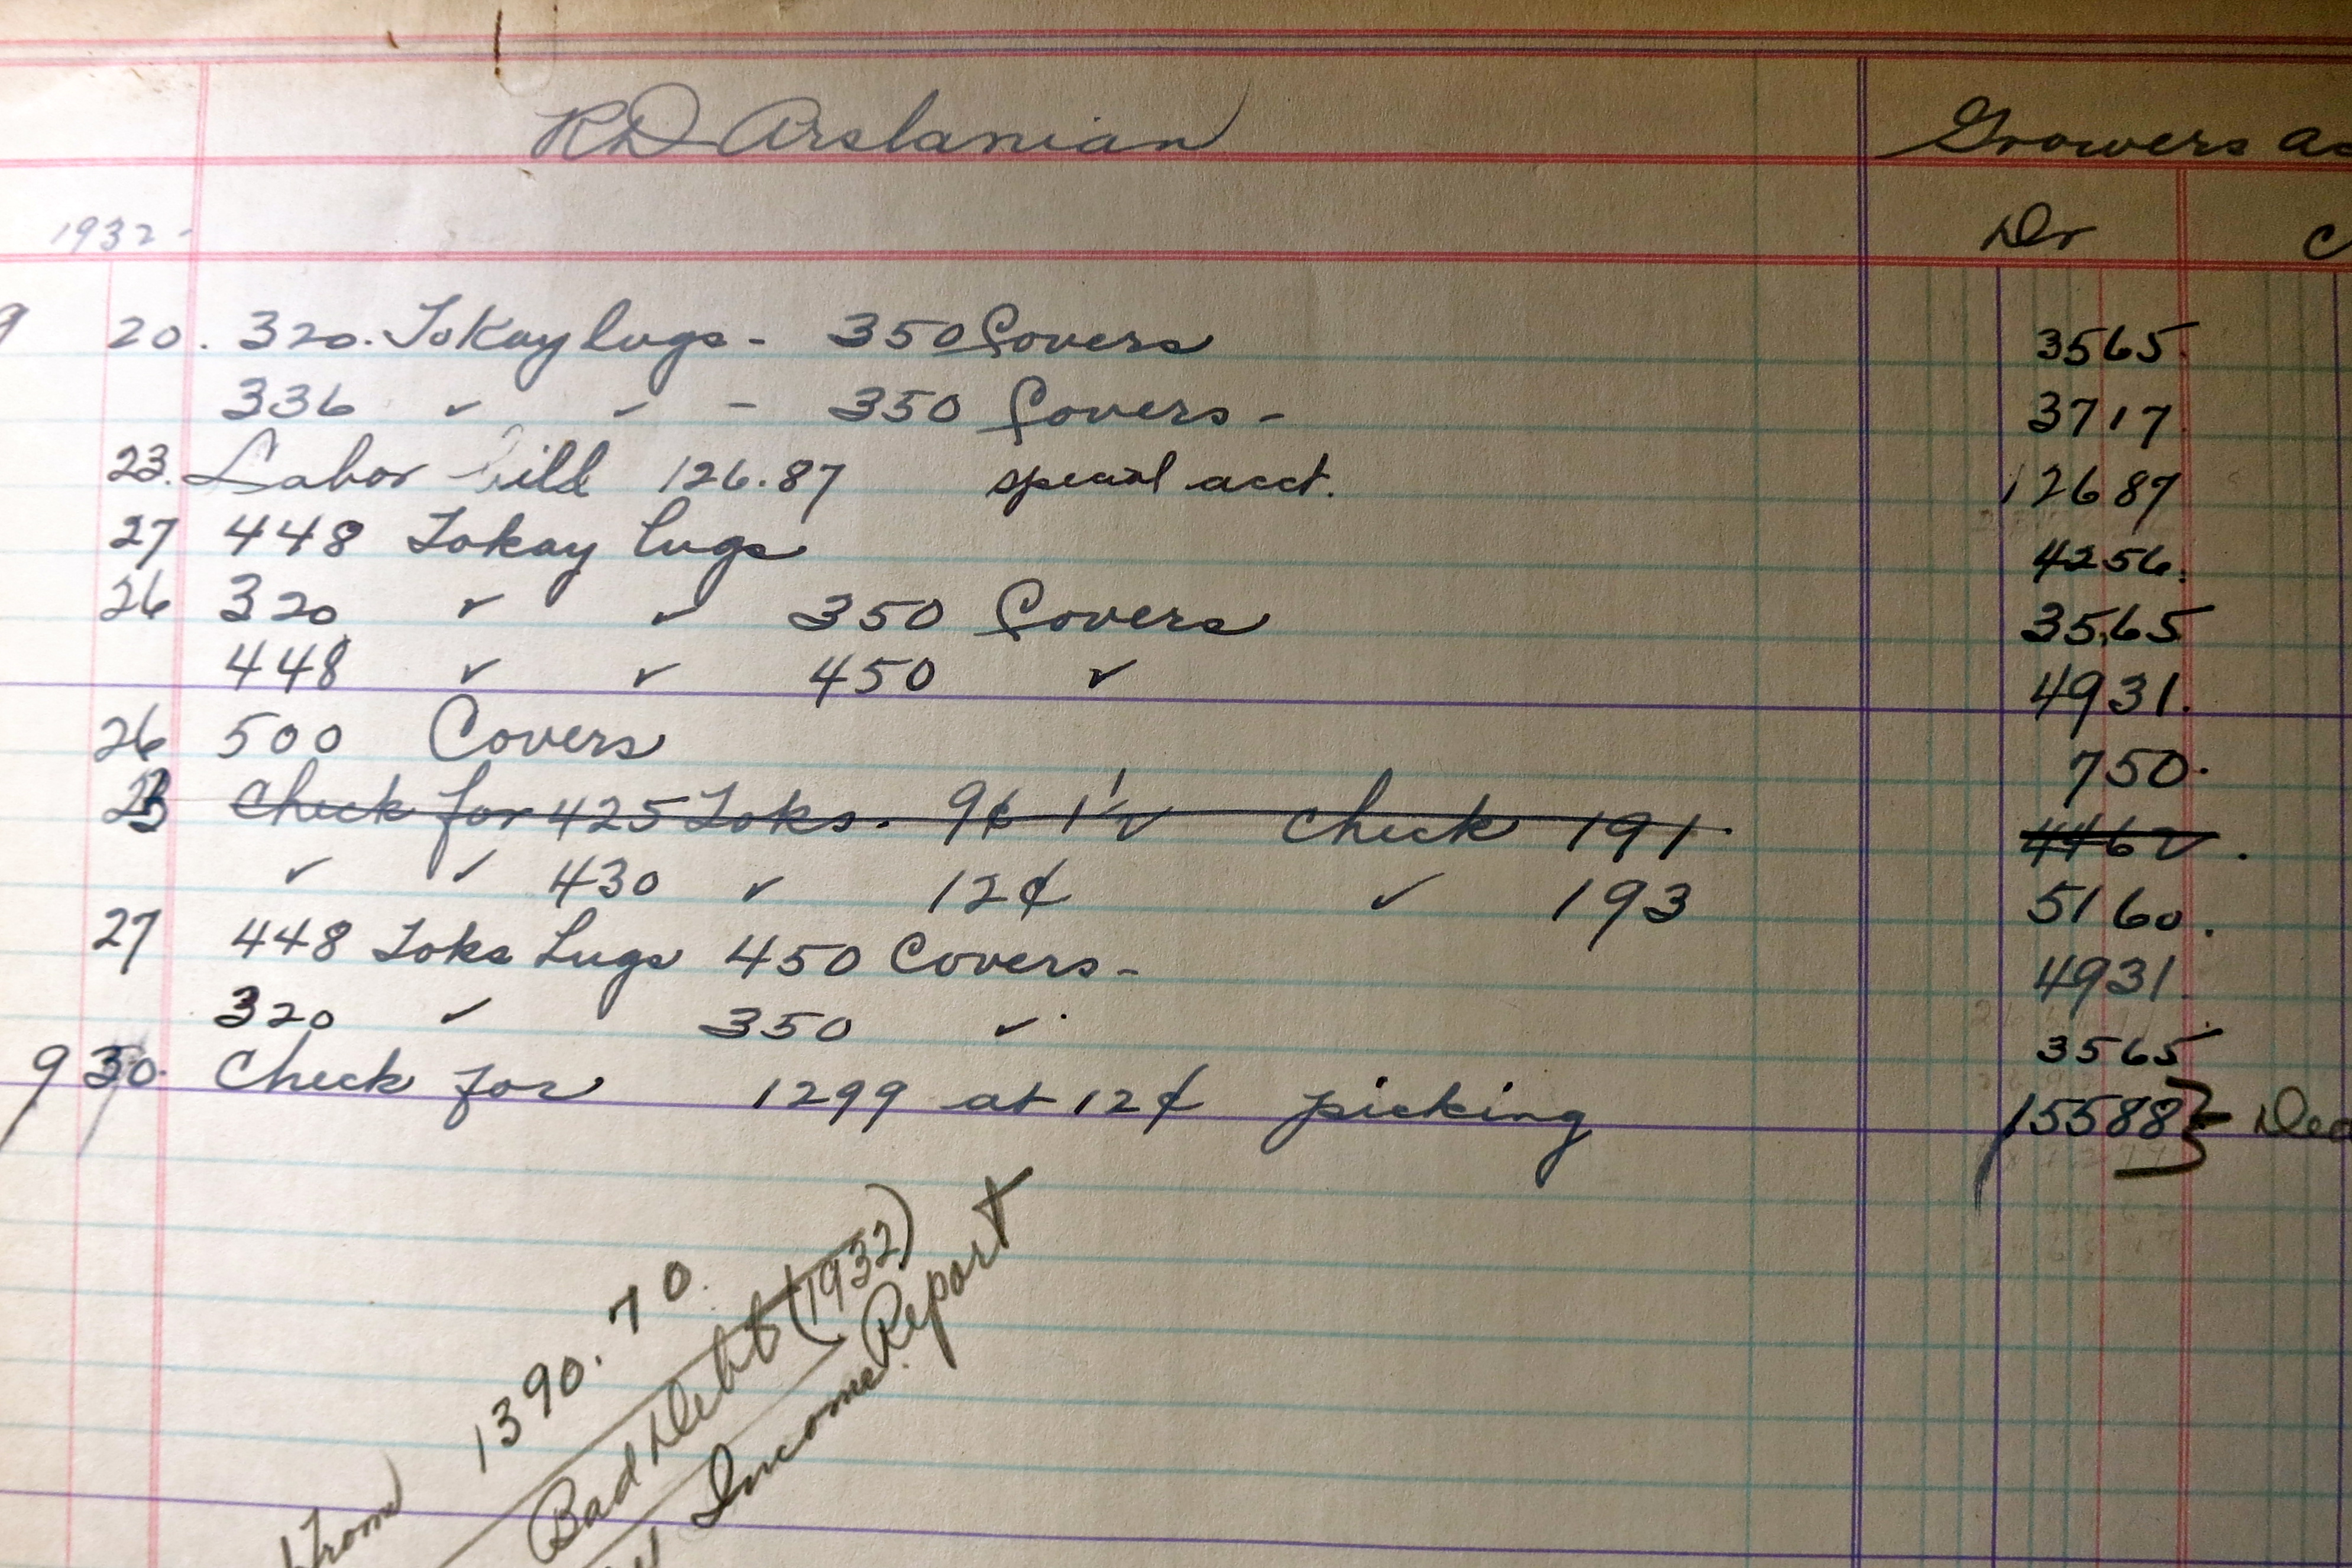 RD Arslanian Growers
1932- Dr C
9 20. 320. Tokay lugs - 350 Covers 3565.
336 " " - 350 Covers - 3717
23. Labor bill 126.87 special acct. 12687
27 448 Tokay lugs 4256.
26 320 " " 350 Covers 3565
448 " " 450 " 4931.
26 500 Covers 750.
Check for 425 Toks. 9¢ 1½ Check 191. 4462.
" " 430 " 12¢ " 193 5160.
27 448 Toks Lugs 450 Covers - 4931.
320 " 350 " 3565
9 30. Check for 1299 at 12¢ picking 15588 }
1390.70.
Bad Debt (1932)
Income Report
from